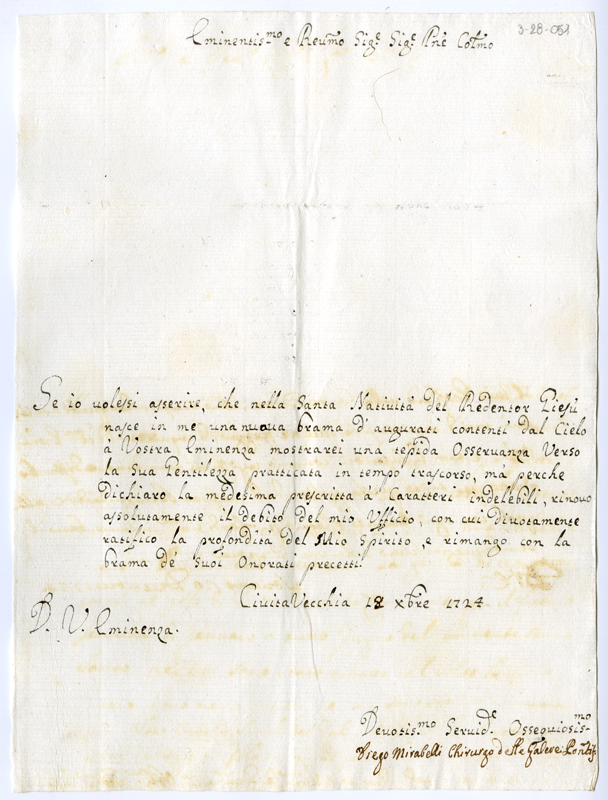 3-28-051
Eminentis.mo e Reu.mo Sig.e Sig.e Pñe Colmo
Se io uolessi asserire, che nella Santa Natiuità del Redentor Giesù
nasce in me una nuoua brama d'augurati contenti dal Cielo
à Vostra Eminenza mostrarei una tepida Osseruanza Verso
la Sua Gentilezza pratticata in tempo trascorso, mà perche
dichiaro la medesima prescritta à Caratteri indelebili, rinouo
assolutamente il debito del mio Vfficio, con cui diuotamente
ratifico la profondità del Mio Spirito, e rimango con la
brama dè Suoi Onorati precetti.
CiuitaVecchia 12 Xbre 1724
D. V. Eminenza.
Deuotis.mo Seruid.e Ossequiosis.mo
Diego Mirabelli Chirurgo delle Galere Pontif.